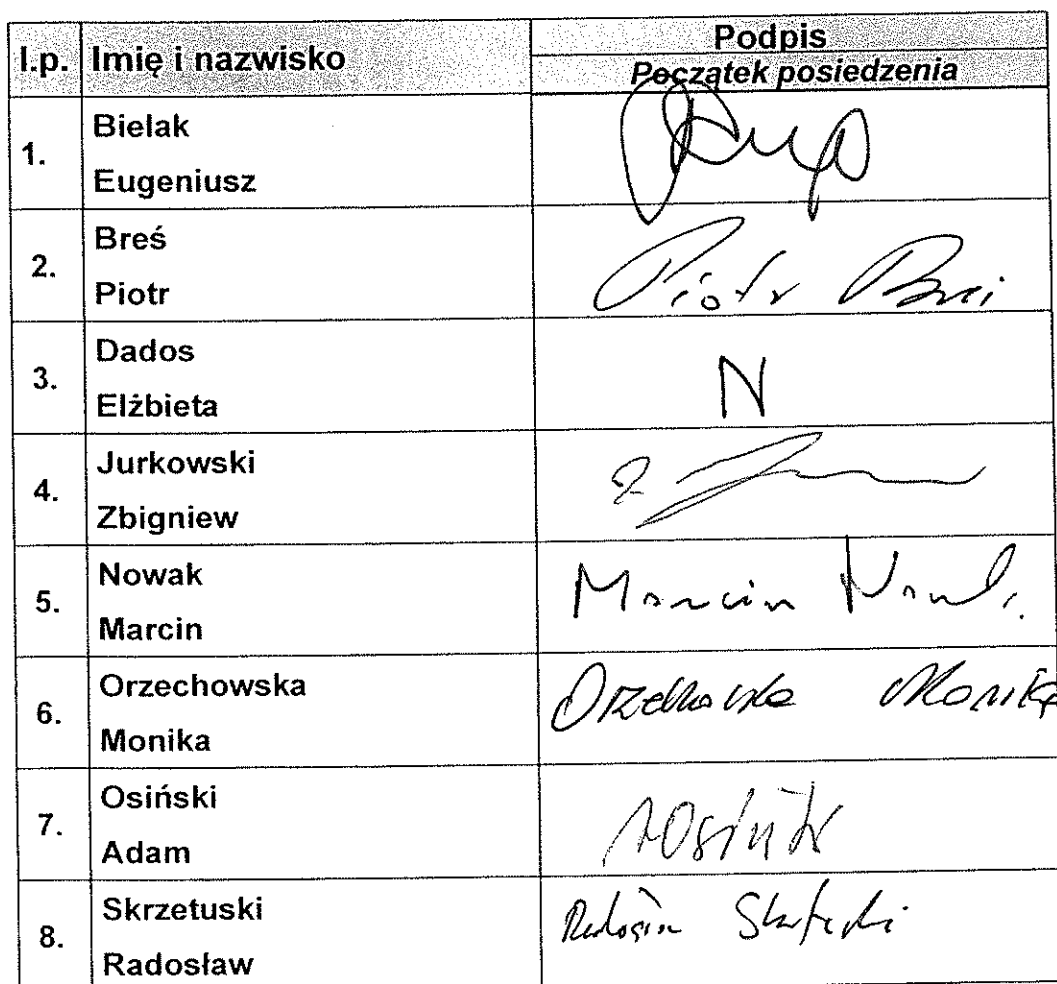 l.p. Imię i nazwisko Podpis
Początek posiedzenia
1. Bielak
Eugeniusz
2. Breś
Piotr Piotr Breś
3. Dados
Elżbieta N
4. Jurkowski
Zbigniew
5. Nowak
Marcin Marcin Nowak
6. Orzechowska Orzechowska Monika
Monika
7. Osiński
Adam AOsiński
8. Skrzetuski Radosław Skrzetuski
Radosław